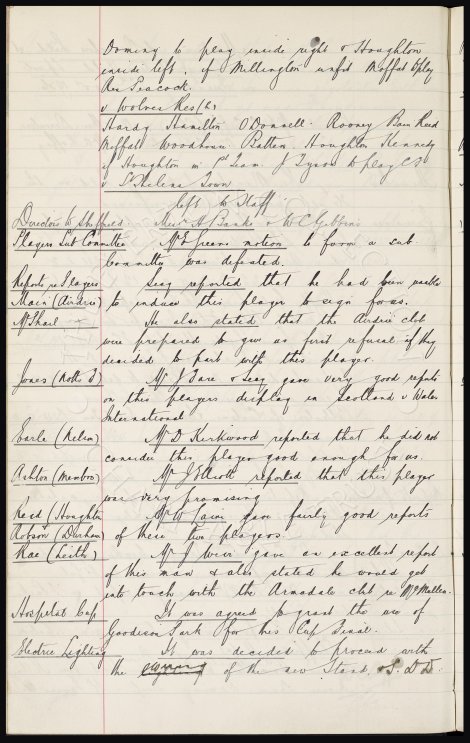 Downing to play inside right & Houghton
inside left, if Millington unfit Moffat to play
Res Peacock.
v Wolver Res (h)
Hardy Hamilton O'Donnell. Rooney Bain Reid
Moffat Woodhouse Batten. Houghton Kennedy
if Houghton in 1st Team J Tyson to play
v St Helens Town
left to Staff
Directors to Sheffield. Messrs A Banks & W C Gibbins
Players Sub Committee Mr motion to form a sub
Committee was defeated.
Reports re Players Secy reported that he had been unable
Main (Airdrie) to induce this player to sign forms.
McPhail He also stated that the Airdrie club
were prepared to give us first refusal if they
decided to part with this player.
Jones (Notts F) Mr J Fare & Secy gave very good reports
on this players display in Scotland v Wales
International.
Earle (Nelson) Mr D Kirkwood reported that he did not
consider this player good enough for us.
Ashton (Meadow) Mr J Elliott reported that this player
was very promising
Reed (Houghton Mr W gave fairly good reports
Robson (Durham) of these two players.
Rae (Leith) Mr J Weir gave an excellent report
of this man & also stated he would get
into touch with the Armadale club re McMullen.
Hospital Cup It was agreed to grant the use of
Goodison Park for this Cup Final.
Electric Lighting It was decided to proceed with
the of the new Stand. S. D D.